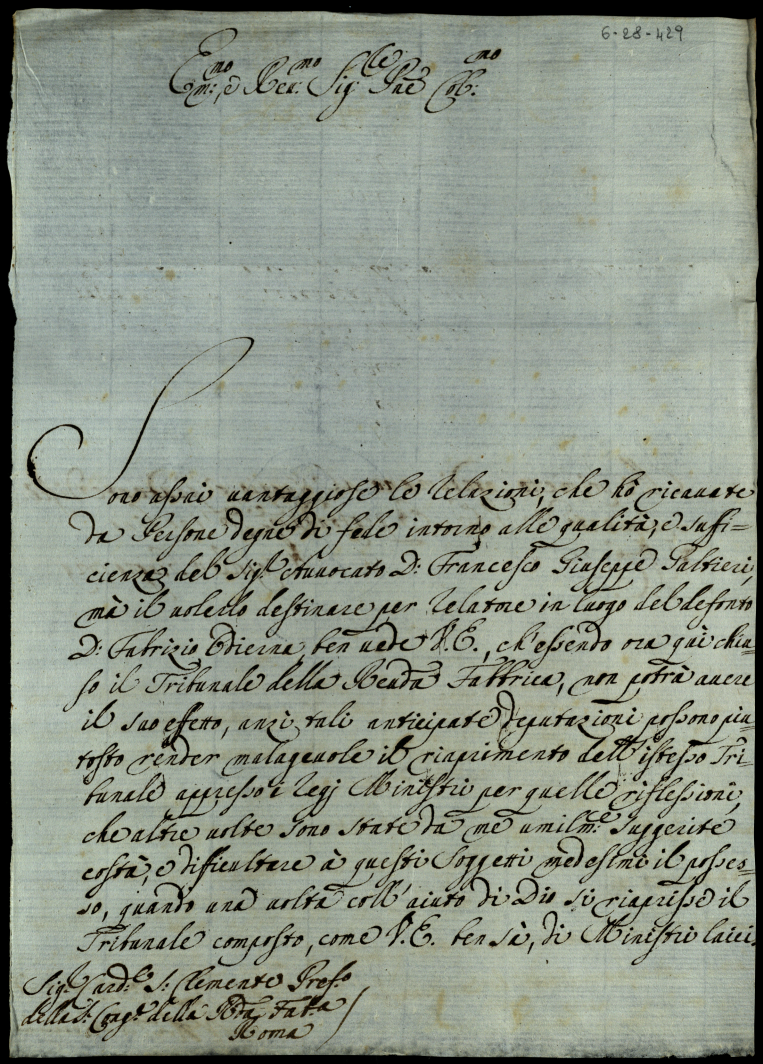 6-28-429
Em:mo, e Reu:mo Sig:re Pne Col:mo
Sono assai uantaggiose le relazioni, che hò ricauate
da Persone degne di fede intorno alle qualità, e suffi=
cienza del Sig:r Auuocato D: Francesco Giuseppe Galtieri,
mà il uolerlo destinare per relatore in luogo del defonto
D: Fabrizio Odierna, ben uede V.E., ch'essendo ora quì chiu=
so il Tribunale della Reuda Fabbrica, non potrà auere
il suo effetto, anzi tali anticipate deputazioni possono più
tosto render malageuole il riaprimento dell'istesso Tri-
bunale appresso i Regj Ministri per quelle riflessioni,
che altre uolte sono state da me umilm:e suggerite
costà, e difficultare à questi Soggetti medesimi il posses=
so, quando una uolta coll'aiuto di Dio si riaprisse il
Tribunale composto, come V.E. ben sà, di Ministri laici.
Sig:r Card:le S: Clemente Pref:o
della S: Cong:e della Rda Fabba
Roma